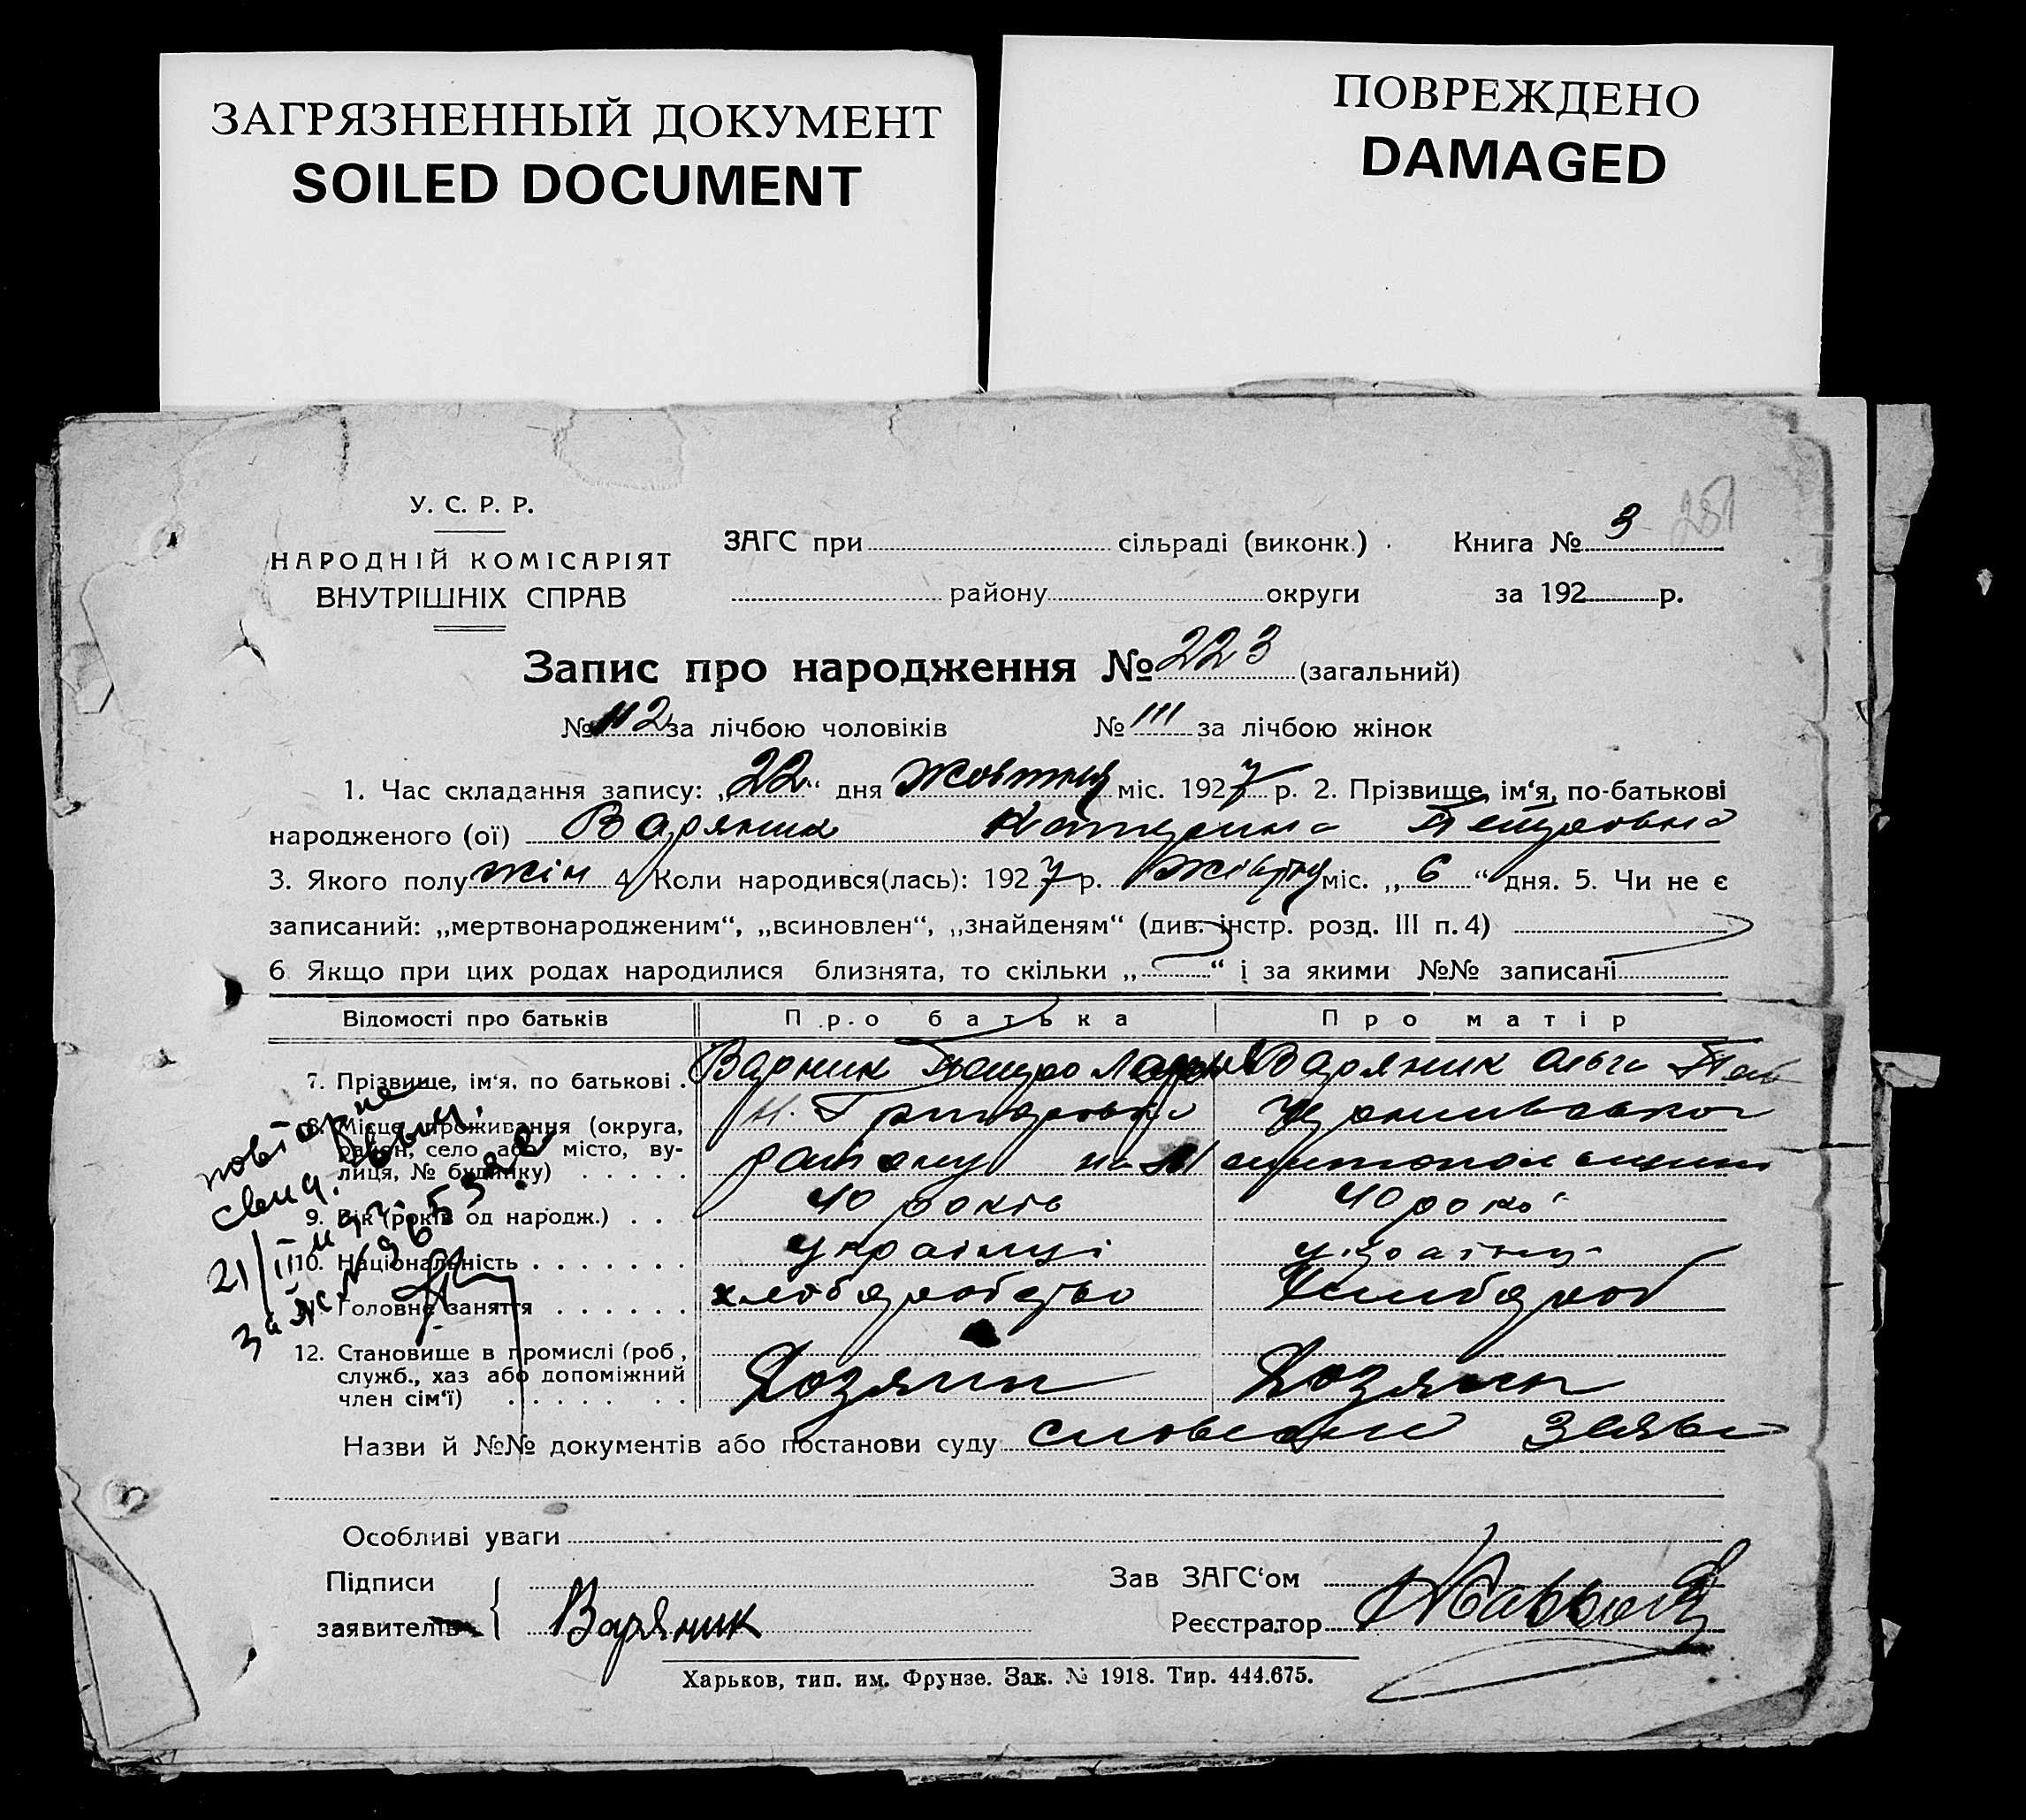 ЗАГРЯЗНЕННЫЙ ДОКУМЕНТ
SOILED DOCUMENT
ПОВРЕЖДЕНО
DAMAGED
У. С. Р. Р.
НАРОДНІЙ КОМІСАРІЯТ
ВНУТРІШНІХ СПРАВ
ЗАГС при сільраді (виконк.) Книга № 3 251
району округи за 192 р.
Запис про народження № 223 (загальний)
№ 112 за лічбою чоловіків № 111 за лічбою жінок
1. Час складання запису: „22“ дня Жовтня міс. 1927 р. 2. Прізвище, ім‘я, по-батькові
народженого (ої) Варяник Катерина Петровна
3. Якого полу жін 4. Коли народився(лась): 1927 р. Жовтня міс. „6“ дня. 5. Чи не є
записаний: „мертвонародженим“, „всиновлен“, „знайденям“ (див. інстр. розд. III п. 4)
6. Якщо при цих родах народилися близнята, то скільки „ “ і за якими №№ записані
Відомості про батьків Про батька Про матір
7. Прізвище, ім‘я, по батькові . Варник Петро Варяник Ольга
8. Місце проживання (округа,
район, село або місто, ву-
лиця, № будинку) . . . . . району на Мелитопольщини
9. Вік (років од народж.) . . . 40 років 40 рокі
10. Національність . . . . . . . українці українці
Головне заняття . . . . . . хлеборобство
12. Становище в промислі (роб.,
служб., хаз або допоміжний
член сім‘ї) . . . . . . . Хозяин Хозяин
Назви й №№ документів або постанови суду словесни заяви
Особливі уваги
Підписи
заявителів { Варяник
Зав ЗАГС‘ом
Реєстратор
Харьков, тип. им. Фрунзе. Зак. № 1918. Тир. 444.675.
повторне
свид.
21/III